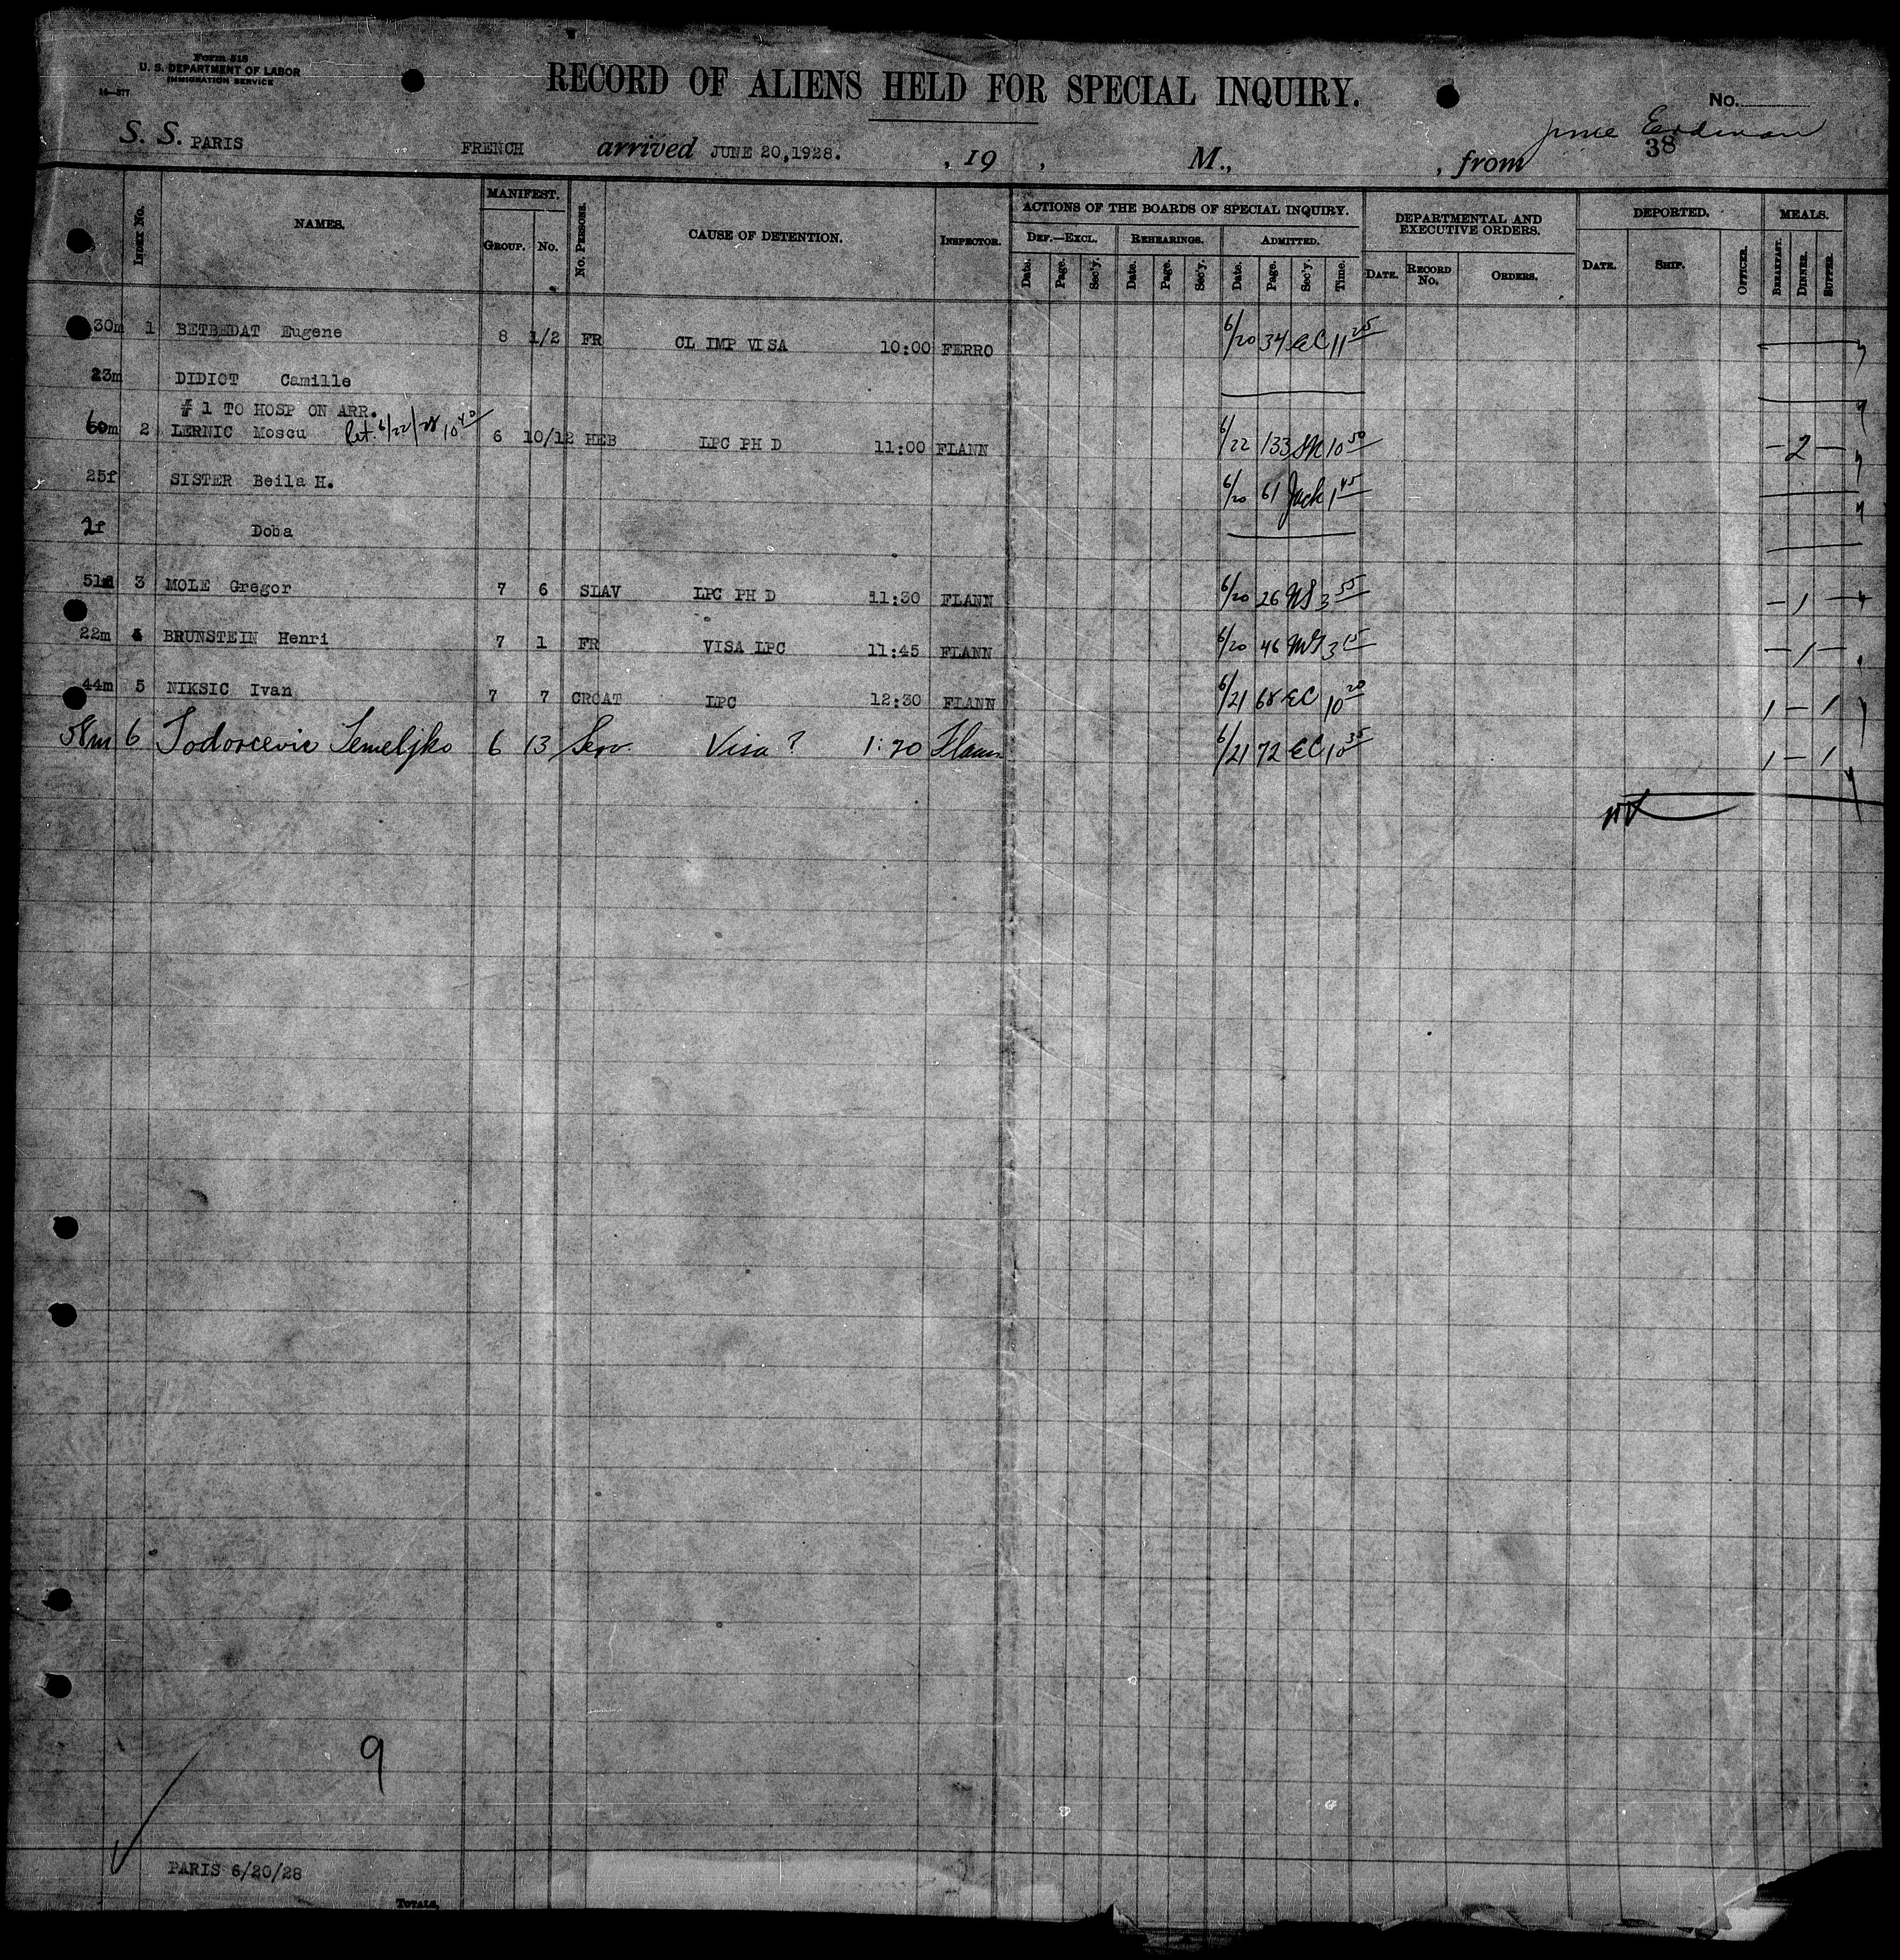 Form 518
U. S. DEPARTMENT OF LABOR
IMMIGRATION SERVICE
14—577
RECORD OF ALIENS HELD FOR SPECIAL INQUIRY.
No.
S. S. PARIS FRENCH arrived JUNE 20,1928. , 19 , M., , from 38
INDEX No. NAMES. MANIFEST. GROUP. No. No. PERSONS. CAUSE OF DETENTION. INSPECTOR. ACTIONS OF THE BOARDS OF SPECIAL INQUIRY. DEPARTMENTAL AND EXECUTIVE ORDERS. DEPORTED. MEALS.
DEF.—EXCL. REHEARINGS. ADMITTED.
Date. Page. Sec'y. Date. Page. Sec'y. Date. Page. Sec'y. Time. DATE. RECORD No. ORDERS. DATE. SHIP. OFFICER. BREAKFAST. DINNER. SUPPER.
30m 1 BETBEDAT Eugene 8 1/2 FR CL IMP VISA 10:00 FERRO 6/20 34 EC 11 25
23m DIDIOT Camille
# 1 TO HOSP ON ARR.
60m 2 LERNIC Moscu Ret. 6/22/28 10 40 6 10/12 HEB LPC PH D 11:00 FLANN 6/22 133 10 50 — 2 —
25f SISTER Beila H. 6/20 61 Jack 1 45
Doba
51m 3 MOLE Gregor 7 6 SLAV LPC PH D 11:30 FLANN 6/20 26 3 55 — 1 —
22m 4 BRUNSTEIN Henri 7 1 FR VISA LPC 11:45 FLANN 6/20 46 3 15 — 1 —
44m 5 NIKSIC Ivan 7 7 CROAT LPC 12:30 FLANN 6/21 68 EC 10 20 1 — 1
6 Todorcevic Temeljko 6 13 Serv. Visa ? 1:20 Flann 6/21 72 EC 10 35 1 — 1
9
PARIS 6/20/28
TOTALS.